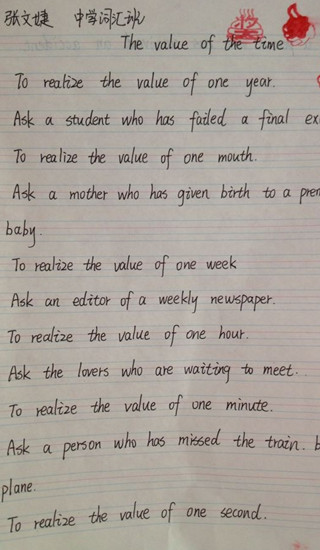 张文婕 中学词汇班
奖
The value of the time
To realize the value of one year.
Ask a student who has failed a final
To realize the value of one mouth.
Ask a mother who has given birth to a
baby.
To realize the value of one week
Ask an editor of a weekly newspaper.
To realize the value of one hour.
Ask the lovers who are waiting to meet.
To realize the value of one minute.
Ask a person who has missed the train.
plane.
To realize the value of one second.